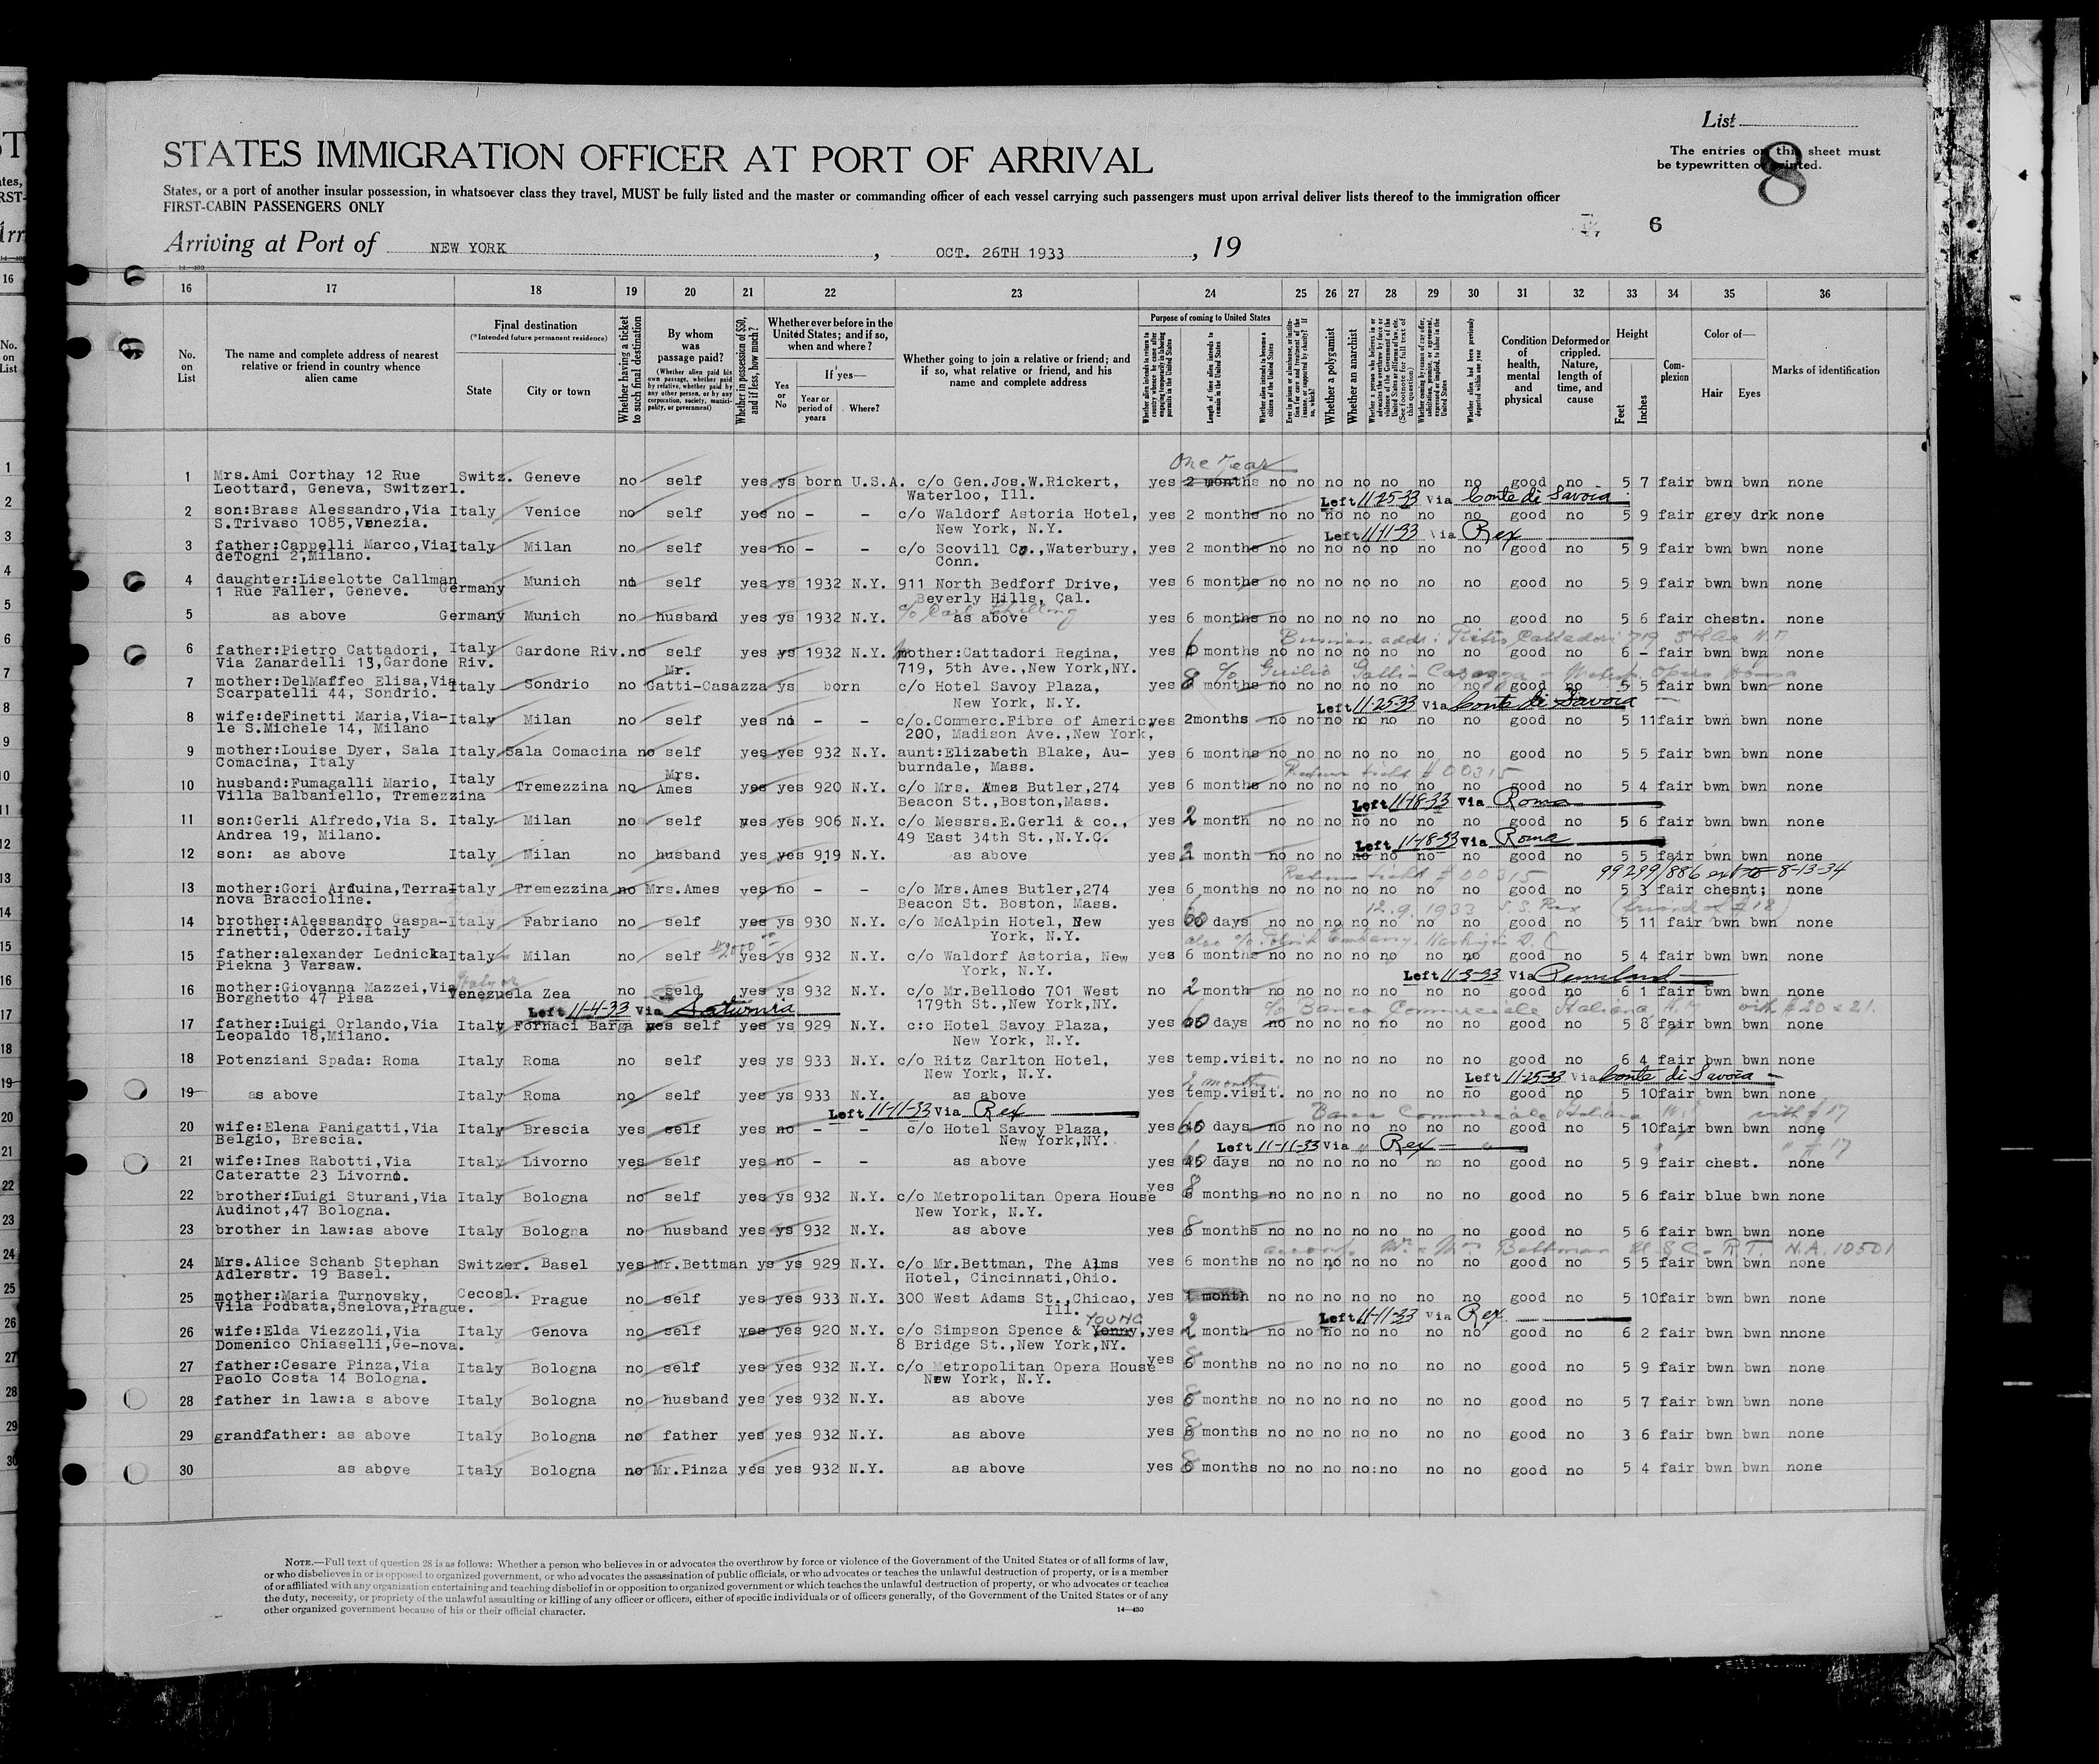 List
The entries on this sheet must
be typewritten or printed.
8
STATES IMMIGRATION OFFICER AT PORT OF ARRIVAL
States, or a port of another insular possession, in whatsoever class they travel, MUST be fully listed and the master or commanding officer of each vessel carrying such passengers must upon arrival deliver lists thereof to the immigration officer
FIRST-CABIN PASSENGERS ONLY
6
Arriving at Port of NEW YORK, OCT. 26TH 1933, 19
16 17 18 19 20 21 22 23 24 25 26 27 28 29 30 31 32 33 34 35 36
No. on List
The name and complete address of nearest relative or friend in country whence alien came
Final destination
(*Intended future permanent residence)
State
City or town
Whether having a ticket to such final destination
By whom was passage paid?
(Whether alien paid his own passage, whether paid by relative, whether paid by any other person, or by any corporation, society, municipality, or government)
Whether in possession of $50, and if less, how much?
Whether ever before in the United States; and if so, when and where?
Yes or No
If yes—
Year or period of years
Where?
Whether going to join a relative or friend; and if so, what relative or friend, and his name and complete address
Purpose of coming to United States
Length of time alien intends to remain in the United States
Whether alien intends to become a citizen of the United States
Whether a polygamist
Whether an anarchist
Condition of health, mental and physical
Deformed or crippled. Nature, length of time, and cause
Height
Feet
Inches
Complexion
Color of—
Hair
Eyes
Marks of identification
One Year
1 Mrs.Ami Corthay 12 Rue Switz. Geneve no self yes ys born U.S.A. c/o Gen.Jos.W.Rickert, yes 2 months no no no no no no no good no 5 7 fair bwn bwn none
Leottard, Geneva, Switzerl. Waterloo, Ill.
Left 11-25-33 Via Conte di Savoia
2 son:Brass Alessandro,Via Italy Venice no self yes no - - c/o Waldorf Astoria Hotel, yes 2 months no no no no no no no good no 5 9 fair grey drk none
S.Trivaso 1085,Venezia. New York, N.Y.
Left 11-11-33 Via Rex
3 father:Cappelli Marco,Via Italy Milan no self yes no - - c/o Scovill Co.,Waterbury, yes 2 months no no no no no no no good no 5 9 fair bwn bwn none
deTogni 2,Milano. Conn.
4 daughter:Liselotte Callman Germany Munich no self yes ys 1932 N.Y. 911 North Bedforf Drive, yes 6 months no no no no no no no good no 5 9 fair bwn bwn none
1 Rue Faller, Geneve. Beverly Hills, Cal.
5 as above Germany Munich no husband yes ys 1932 N.Y. as above yes 6 months no no no no no no no good no 5 6 fair chestn.
6 father:Pietro Cattadori, Italy Gardone Riv. no self yes ys 1932 N.Y. mother:Cattadori Regina, yes 6 months no no no no no no no good no 6 - fair bwn bwn none
Via Zanardelli 13,Gardone Riv. 719, 5th Ave.,New York,NY.
7 mother:DelMaffeo Elisa,Via Italy Sondrio no Mr. Gatti-Casazza ys born c/o Hotel Savoy Plaza, yes 8 months no no no no no no no good no 5 5 fair bwn bwn none
Scarpatelli 44, Sondrio. New York, N.Y.
Left 11-25-33 Via Conte di Savoia
8 wife:deFinetti Maria,Via- Italy Milan no self yes no - - c/o.Commerc.Fibre of Americ, yes 2months no no no no no no no good no 5 11 fair bwn bwn none
le S.Michele 14, Milano 200, Madison Ave.,New York,
9 mother:Louise Dyer, Sala Italy Sala Comacina no self yes yes 932 N.Y. aunt:Elizabeth Blake, Au- yes 6 months no no no no no no no good no 5 5 fair bwn bwn none
Comacina, Italy burndale, Mass.
Return tickt # 00315
10 husband:Fumagalli Mario, Italy Tremezzina no Mrs. Ames yes yes 920 N.Y. c/o Mrs. Ames Butler,274 yes 6 months no no no no no no no good no 5 4 fair bwn bwn none
Villa Balbaniello, Tremezzina Beacon St.,Boston,Mass.
Left 11-18-33 Via Roma
11 son:Gerli Alfredo,Via S. Italy Milan no self yes yes 906 N.Y. c/o Messrs.E.Gerli & co., yes 2 month no no no no no no no good no 5 6 fair bwn bwn none
Andrea 19, Milano. 49 East 34th St.,N.Y.C.
Left 11-18-33 Via Roma
12 son: as above Italy Milan no husband yes yes 919 N.Y. as above yes 2 month no no no no no no no good no 5 5 fair bwn bwn none
Return tickt # 00315 99299/886 ext to 8-13-34
13 mother:Gori Arduina,Terra- Italy Tremezzina no Mrs.Ames yes no - - c/o Mrs.Ames Butler,274 yes 6 months no no no no no no no good no 5 3 fair chesnt; none
nova Braccioline. Beacon St. Boston, Mass.
12.9.1933 S.S. Rex
14 brother:Alessandro Gaspa- Italy Fabriano no self yes ys 930 N.Y. c/o McAlpin Hotel, New yes 60 days no no no no no no no good no 5 11 fair bwn bwn none
rinetti, Oderzo.Italy York, N.Y.
also c/o Polish Embassy, Washington D.C.
15 father:alexander Lednicka Italy Milan no self $2000 yes ys 932 N.Y. c/o Waldorf Astoria, New yes 6 months no no no no no no no good no 5 4 fair bwn bwn none
Piekna 3 Varsaw. York, N.Y.
Left 11-3-33 Via
16 mother:Giovanna Mazzei,Via Venezuela Zea no seld yes ys 932 N.Y. c/o Mr.Bellodo 701 West no 2 month no no no no no no no good no 6 1 fair bwn bwn none
Borghetto 47 Pisa 179th St.,New York,NY.
Left 11-4-33 Via Saturnia c/o Banca Commerciale Italiana N.Y. with # 20 & 21.
17 father:Luigi Orlando,Via Italy Fornaci Barga yes self yes ys 929 N.Y. c:o Hotel Savoy Plaza, yes 60 days no no no no no no no good no 5 8 fair bwn bwn none
Leopaldo 18,Milano. New York, N.Y.
18 Potenziani Spada: Roma Italy Roma no self yes ys 933 N.Y. c/o Ritz Carlton Hotel, yes temp.visit. no no no no no no good no 6 4 fair bwn bwn none
New York, N.Y.
2 months Left 11-25-33 Via Conte di Savoia
19 as above Italy Roma no self yes ys 933 N.Y. as above yes temp.visit. no no no no no no good no 5 10 fair bwn bwn none
Left 11-11-33 Via Rex Banca Commerciale Italiana N.Y. with # 17
20 wife:Elena Panigatti,Via Italy Brescia yes self yes no - - c/o Hotel Savoy Plaza, yes 60 days no no no no no no no good no 5 10 fair bwn bwn none
Belgio, Brescia. New York,NY.
Left 11-11-33 Via Rex " # 17
21 wife:Ines Rabotti,Via Italy Livorno yes self yes no - - as above yes 45 days no no no no no no no good no 5 9 fair chest. none
Cateratte 23 Livorno.
22 brother:Luigi Sturani,Via Italy Bologna no self yes ys 932 N.Y. c/o Metropolitan Opera House yes 8 months no no no n no no no good no 5 6 fair blue bwn none
Audinot,47 Bologna. New York, N.Y.
23 brother in law:as above Italy Bologna no husband yes ys 932 N.Y. as above yes 8 months no no no no no no no good no 5 6 fair bwn bwn none
24 Mrs.Alice Schanb Stephan Switzer. Basel yes Mr.Bettman ys ys 929 N.Y. c/o Mr.Bettman, The Alms yes 6 months no no no no no no no good no 5 5 fair bwn bwn none
Adlerstr. 19 Basel. Hotel, Cincinnati,Ohio.
25 mother:Maria Turnovsky, Cecosl. Prague no self yes yes 933 N.Y. 300 West Adams St.,Chicao, yes 1 month no no no no no no no good no 5 10 fair bwn bwn none
Vila Podbata,Snelova,Prague. Ill.
YOUNG Left 11-11-33 Via Rex
26 wife:Elda Viezzoli,Via Italy Genova no self yes yes 920 N.Y. c/o Simpson Spence & Yonny, yes 2 month no no no no no no no good no 6 2 fair bwn bwn nnone
Domenico Chiaselli,Ge-nova. 8 Bridge St.,New York,NY.
27 father:Cesare Pinza,Via Italy Bologna no self yes yes 932 N.Y. c/o Metropolitan Opera House yes 8 months no no no no no no no good no 5 9 fair bwn bwn none
Paolo Costa 14 Bologna. New York, N.Y.
28 father in law:a s above Italy Bologna no husband yes yes 932 N.Y. as above yes 8 months no no no no no no no good no 5 7 fair bwn bwn none
29 grandfather: as above Italy Bologna no father yes yes 932 N.Y. as above yes 8 months no no no no no no no good no 3 6 fair bwn bwn none
30 as above Italy Bologna no Mr.Pinza yes yes 932 N.Y. as above yes 8 months no no no no no no no good no 5 4 fair bwn bwn none
NOTE.—Full text of question 28 is as follows: Whether a person who believes in or advocates the overthrow by force or violence of the Government of the United States or of all forms of law,
or who disbelieves in or is opposed to organized government, or who advocates the assassination of public officials, or who advocates or teaches the unlawful destruction of property, or is a member
of or affiliated with any organization entertaining and teaching disbelief in or opposition to organized government or which teaches the unlawful destruction of property, or who advocates or teaches
the duty, necessity, or propriety of the unlawful assaulting or killing of any officer or officers, either of specific individuals or of officers generally, of the Government of the United States or of any
other organized government because of his or their official character.
14—430